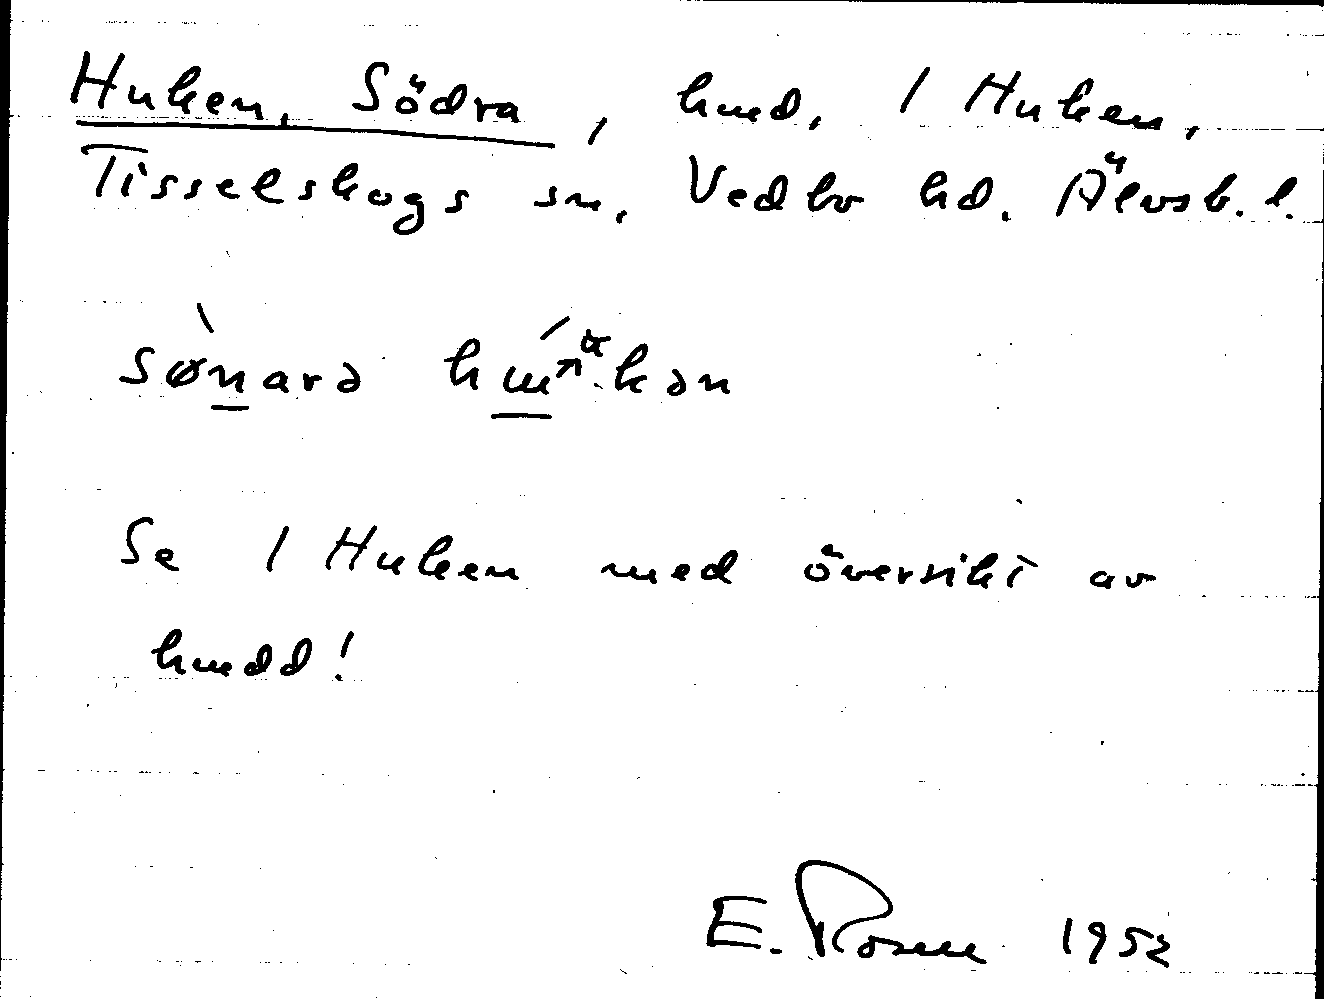 Huken, Södra, hmd, 1 Huken,
Tisselskogs sn, Vedbo hd. Älvsb. l.
Se 1 Huken med översikt av
hmdd!
E. Rosell 1952